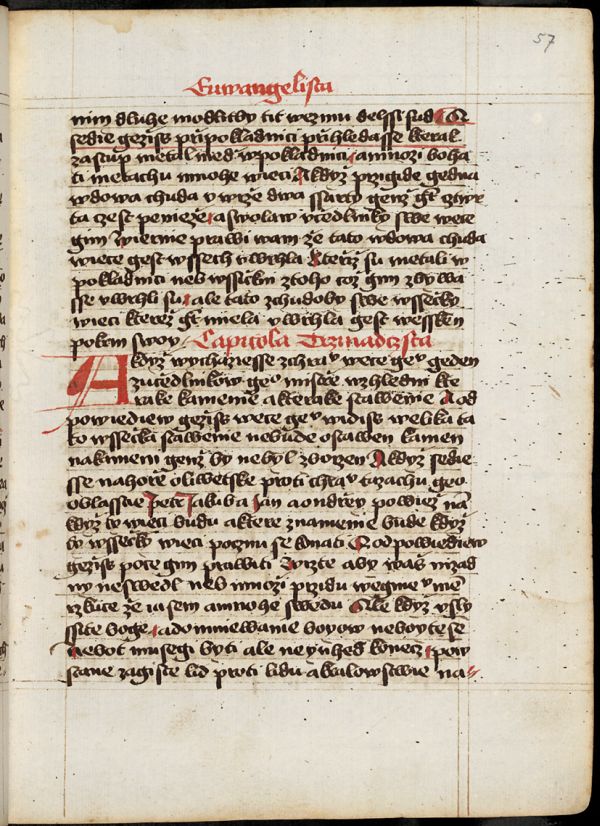 57
Euwangelista
nim dluhe modlitby tit wezmu delssi sud A
sedie gezijs pr̃i pokladnici pr̃ihledasse kteral
zastup metal med w pokladnici a mnozi boha
ti metachu mnohe wieci A kdyz̃ przigide gedna
wdowa chuda uwrz̃e dwa ssarty genz̃ gt̃ cztwr
ta czest penieze a swolaw uczedlniky swe wece
gim wierne prawi wam z̃e tato wdowa chuda
wiece gest wssech uwrhla kteriz̃ su metali w
pokladnici neb wssickni z toho coz̃ gim zbywa
sse uwrhli su ale tato z chudoby swe wssecky
wieci kterez̃ gt̃ miela uwrhla gest wessken
pokrm swoy Capitola Trzinadczsta
A kdyz̃ wychaziesse z chraᵘ wece geᵘ geden
z uczedlnikow geᵒ mistr̃e wzhledni kte
rake kamenie a kterake stawenie A od
powiediew gezijs wece geᵘ widiss welika ta
to wssecka stawenie nebude ostawen kamen
na kameni genz̃ by nebyl zborzen A kdyz̃ sedie
sse na hor̃e oliwetske proti chraᵘ tazachu geo
oblasstie Petr Jakub a Jan a ondrzey powiez̃ nã
kdyz̃ ty wieci budu a ktere znamenie bude kdyz̃
ty wssecky wieci pocznu se konati A odpowiediew
gezijs pocze gim prawiti wizte aby was nizad
ny neswedl neb mnozi przidu we gmie ᵘ mẽ
rzkuce z̃e ia sem a mnohe swedu Ale kdyz̃ usly
ssite boge a domniewanie boyow neboyte se
nebot musegi byti ale ne ynhed konecz pow
stane zagiste lid proti lidu a kralowstwie na